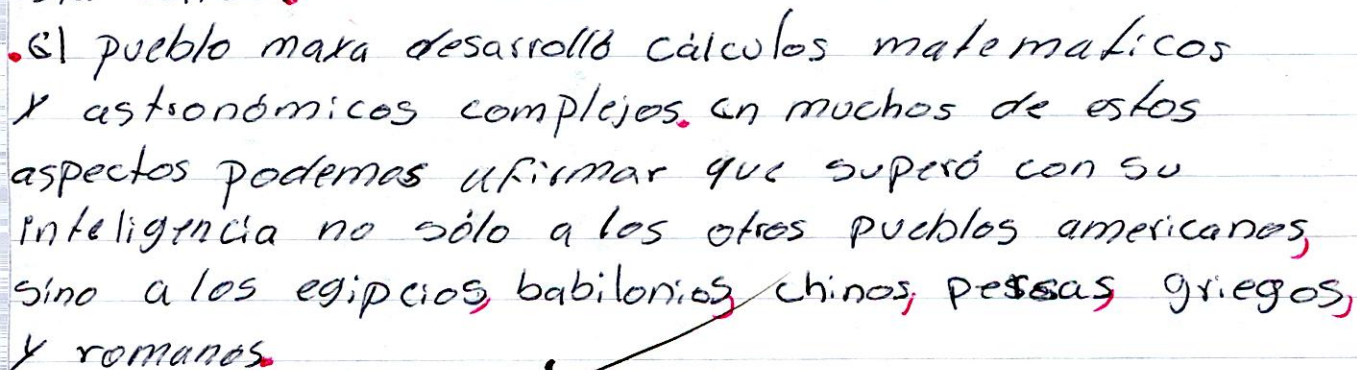 .El pueblo maya desarrolló cálculos matematicos
y astronómicos complejos. En muchos de estos
aspectos podemos afirmar que superó con su
inteligencia no sólo a los otros pueblos americanos,
sino a los egipcios, babilonios, chinos, persas, griegos,
y romanos.